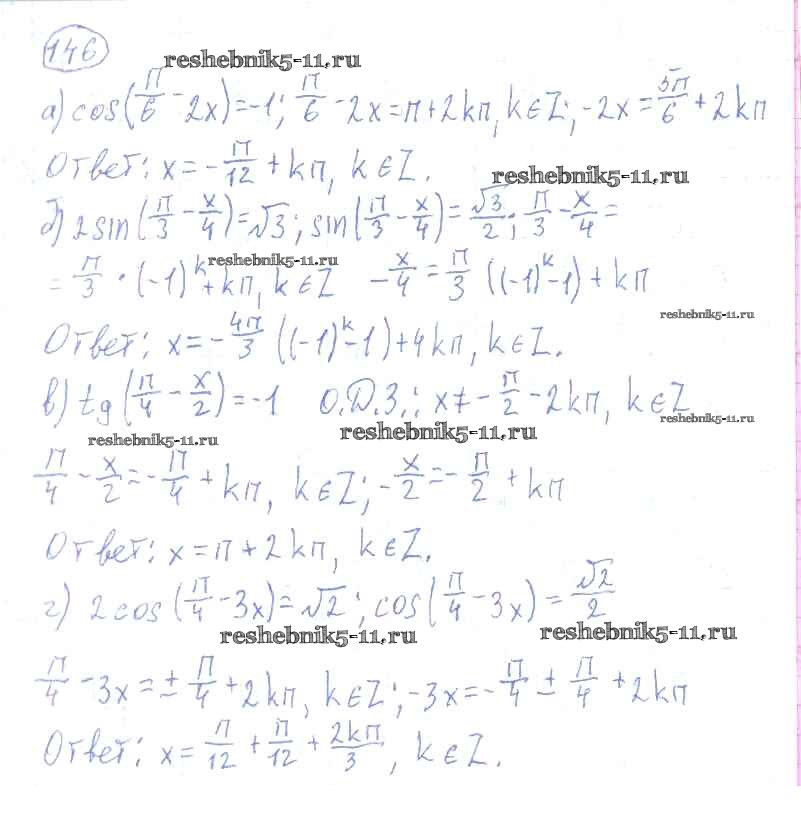 146 reshebnik5-11.ru
а) cos(π/6 - 2x)=-1; π/6 - 2x=π+2kπ, k∈Z; -2x=5π/6+2kπ
Ответ: x=-π/12+kπ, k∈Z.
reshebnik5-11.ru
б) 2sin(π/3 - x/4)=√3; sin(π/3 - x/4)=√3/2; π/3 - x/4=
reshebnik5-11.ru
=π/3·(-1)^k+kπ, k∈Z -x/4=π/3((-1)^k-1)+kπ
reshebnik5-11.ru
Ответ: x=-4π/3((-1)^k-1)+4kπ, k∈Z.
в) tg(π/4 - x/2)=-1 О.Д.З.: x≠-π/2-2kπ, k∈Z
reshebnik5-11.ru
reshebnik5-11.ru
reshebnik5-11.ru
π/4 - x/2=-π/4+kπ, k∈Z; -x/2=-π/2+kπ
Ответ: x=π+2kπ, k∈Z.
г) 2cos(π/4 - 3x)=√2; cos(π/4 - 3x)=√2/2
reshebnik5-11.ru
reshebnik5-11.ru
π/4 - 3x=±π/4+2kπ, k∈Z; -3x=-π/4±π/4+2kπ
Ответ: x=π/12+π/12+2kπ/3, k∈Z.